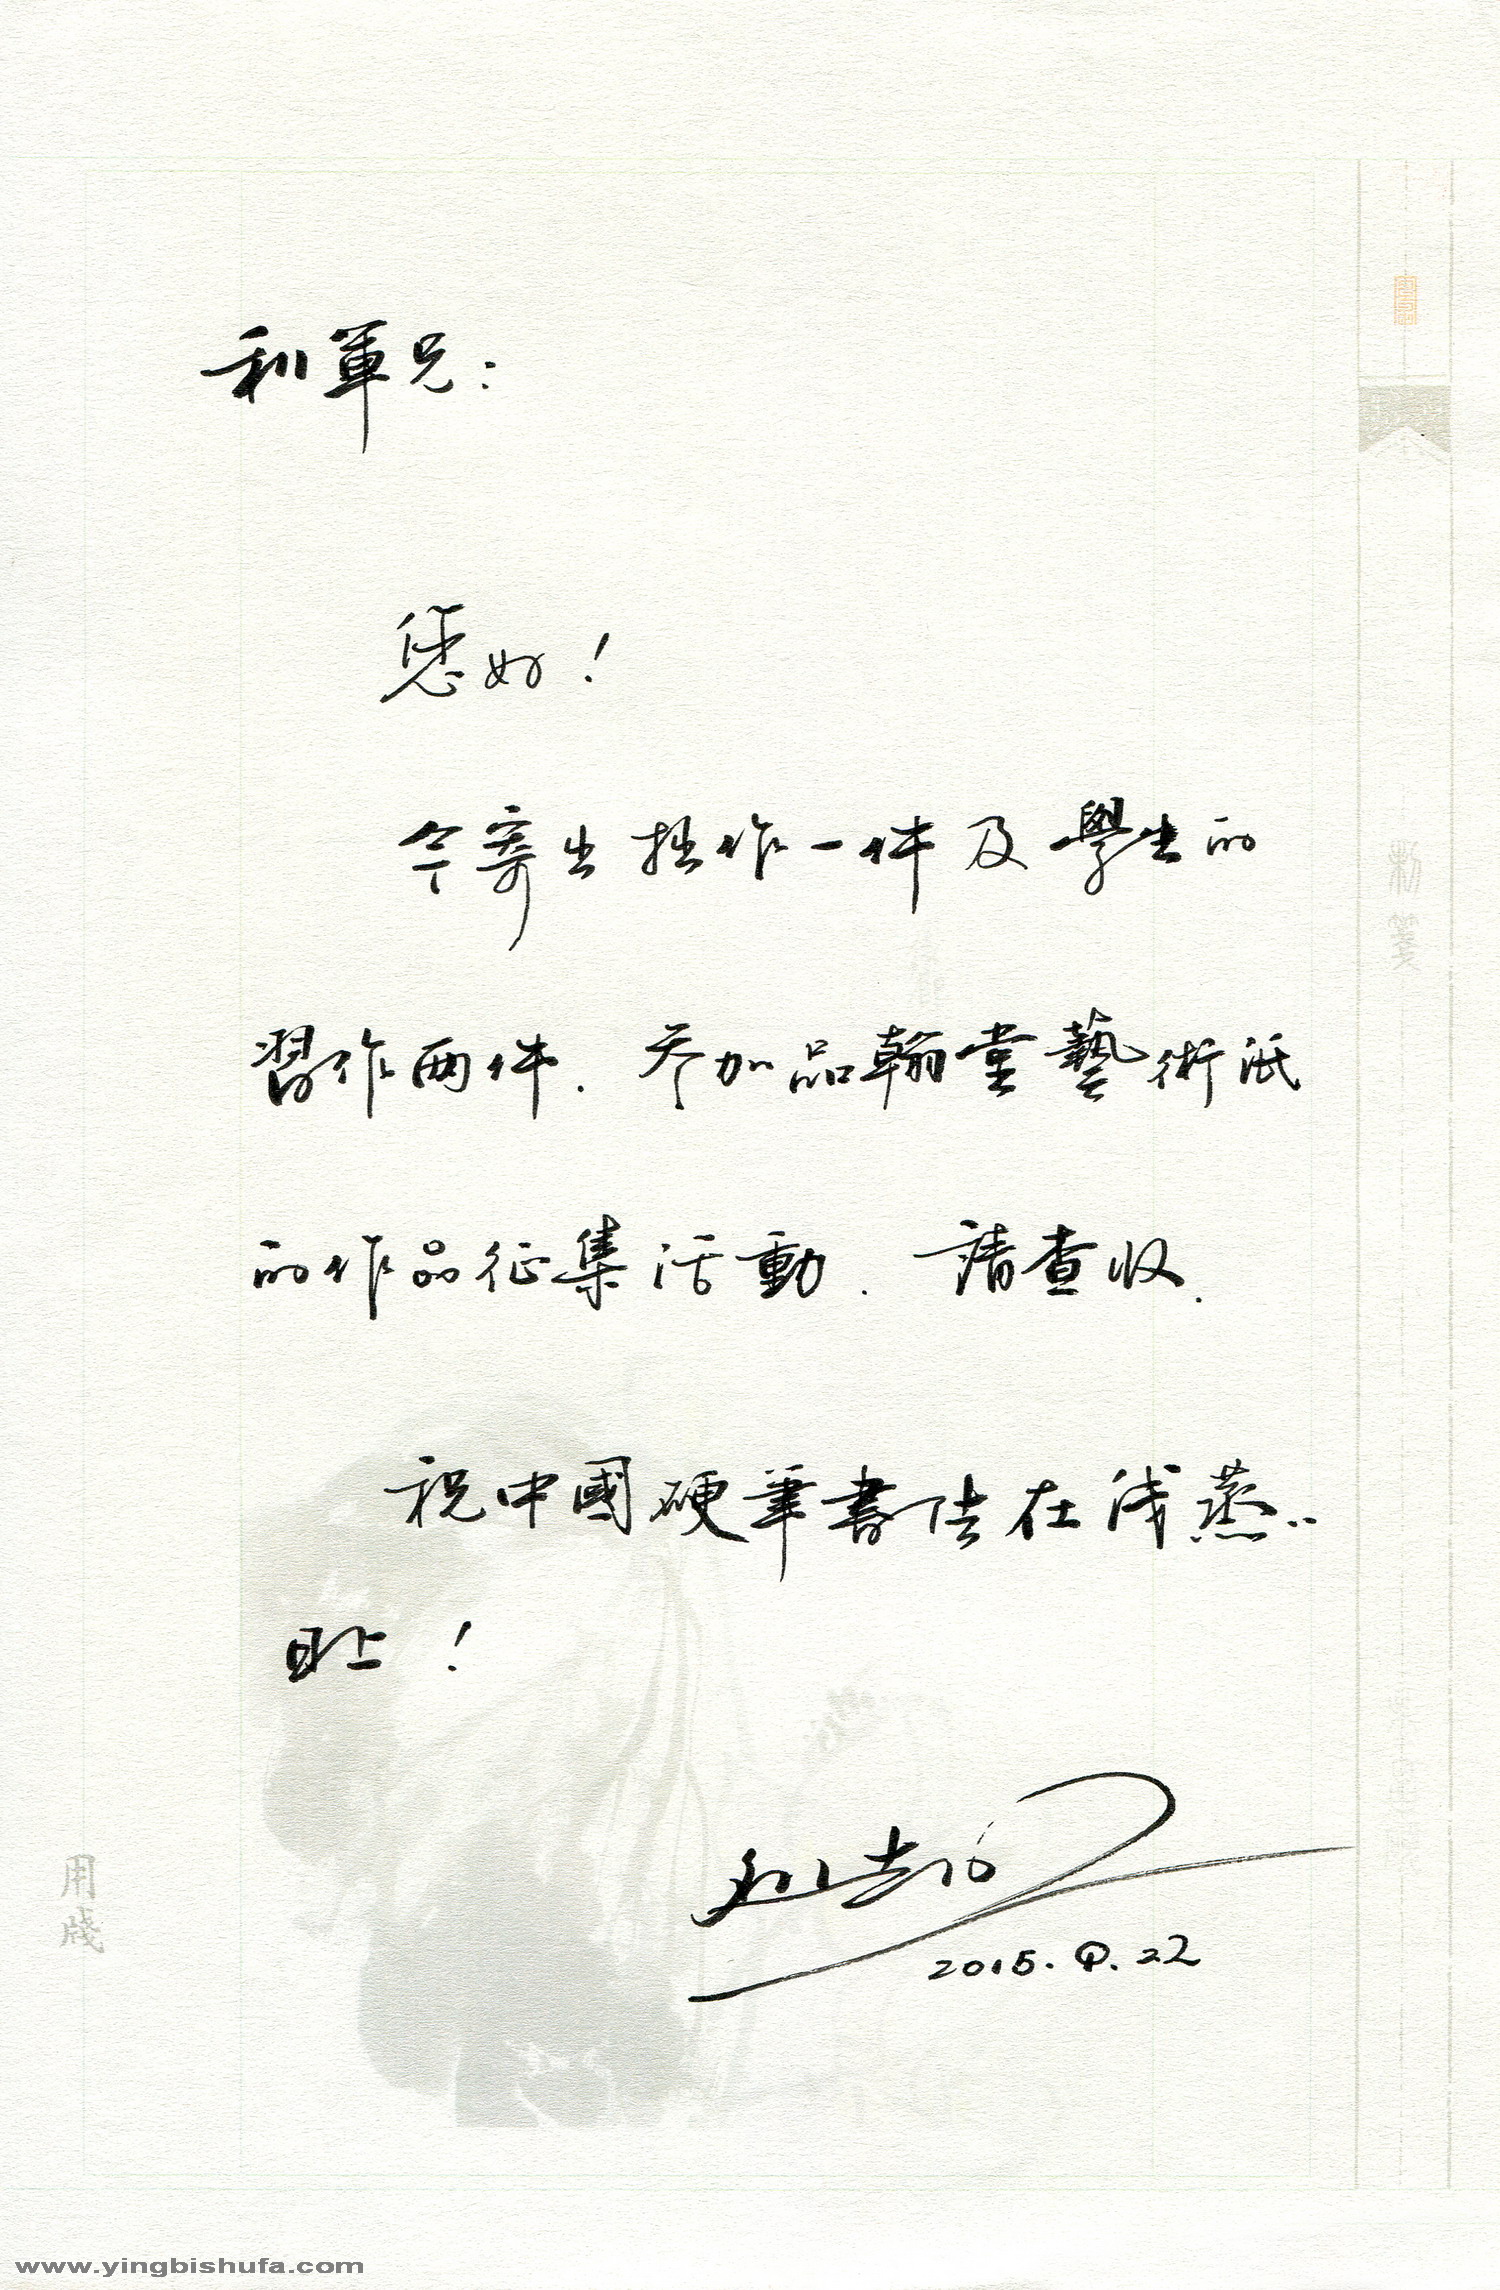 利軍兄：
您好！
今寄出拙作一件及學生的
習作两件．参加品翰堂藝術派
的作品征集活動．請查收．
祝中國硬筆書法在线蒸..
日上！
2015.9.22
用牋
www.yingbishufa.com